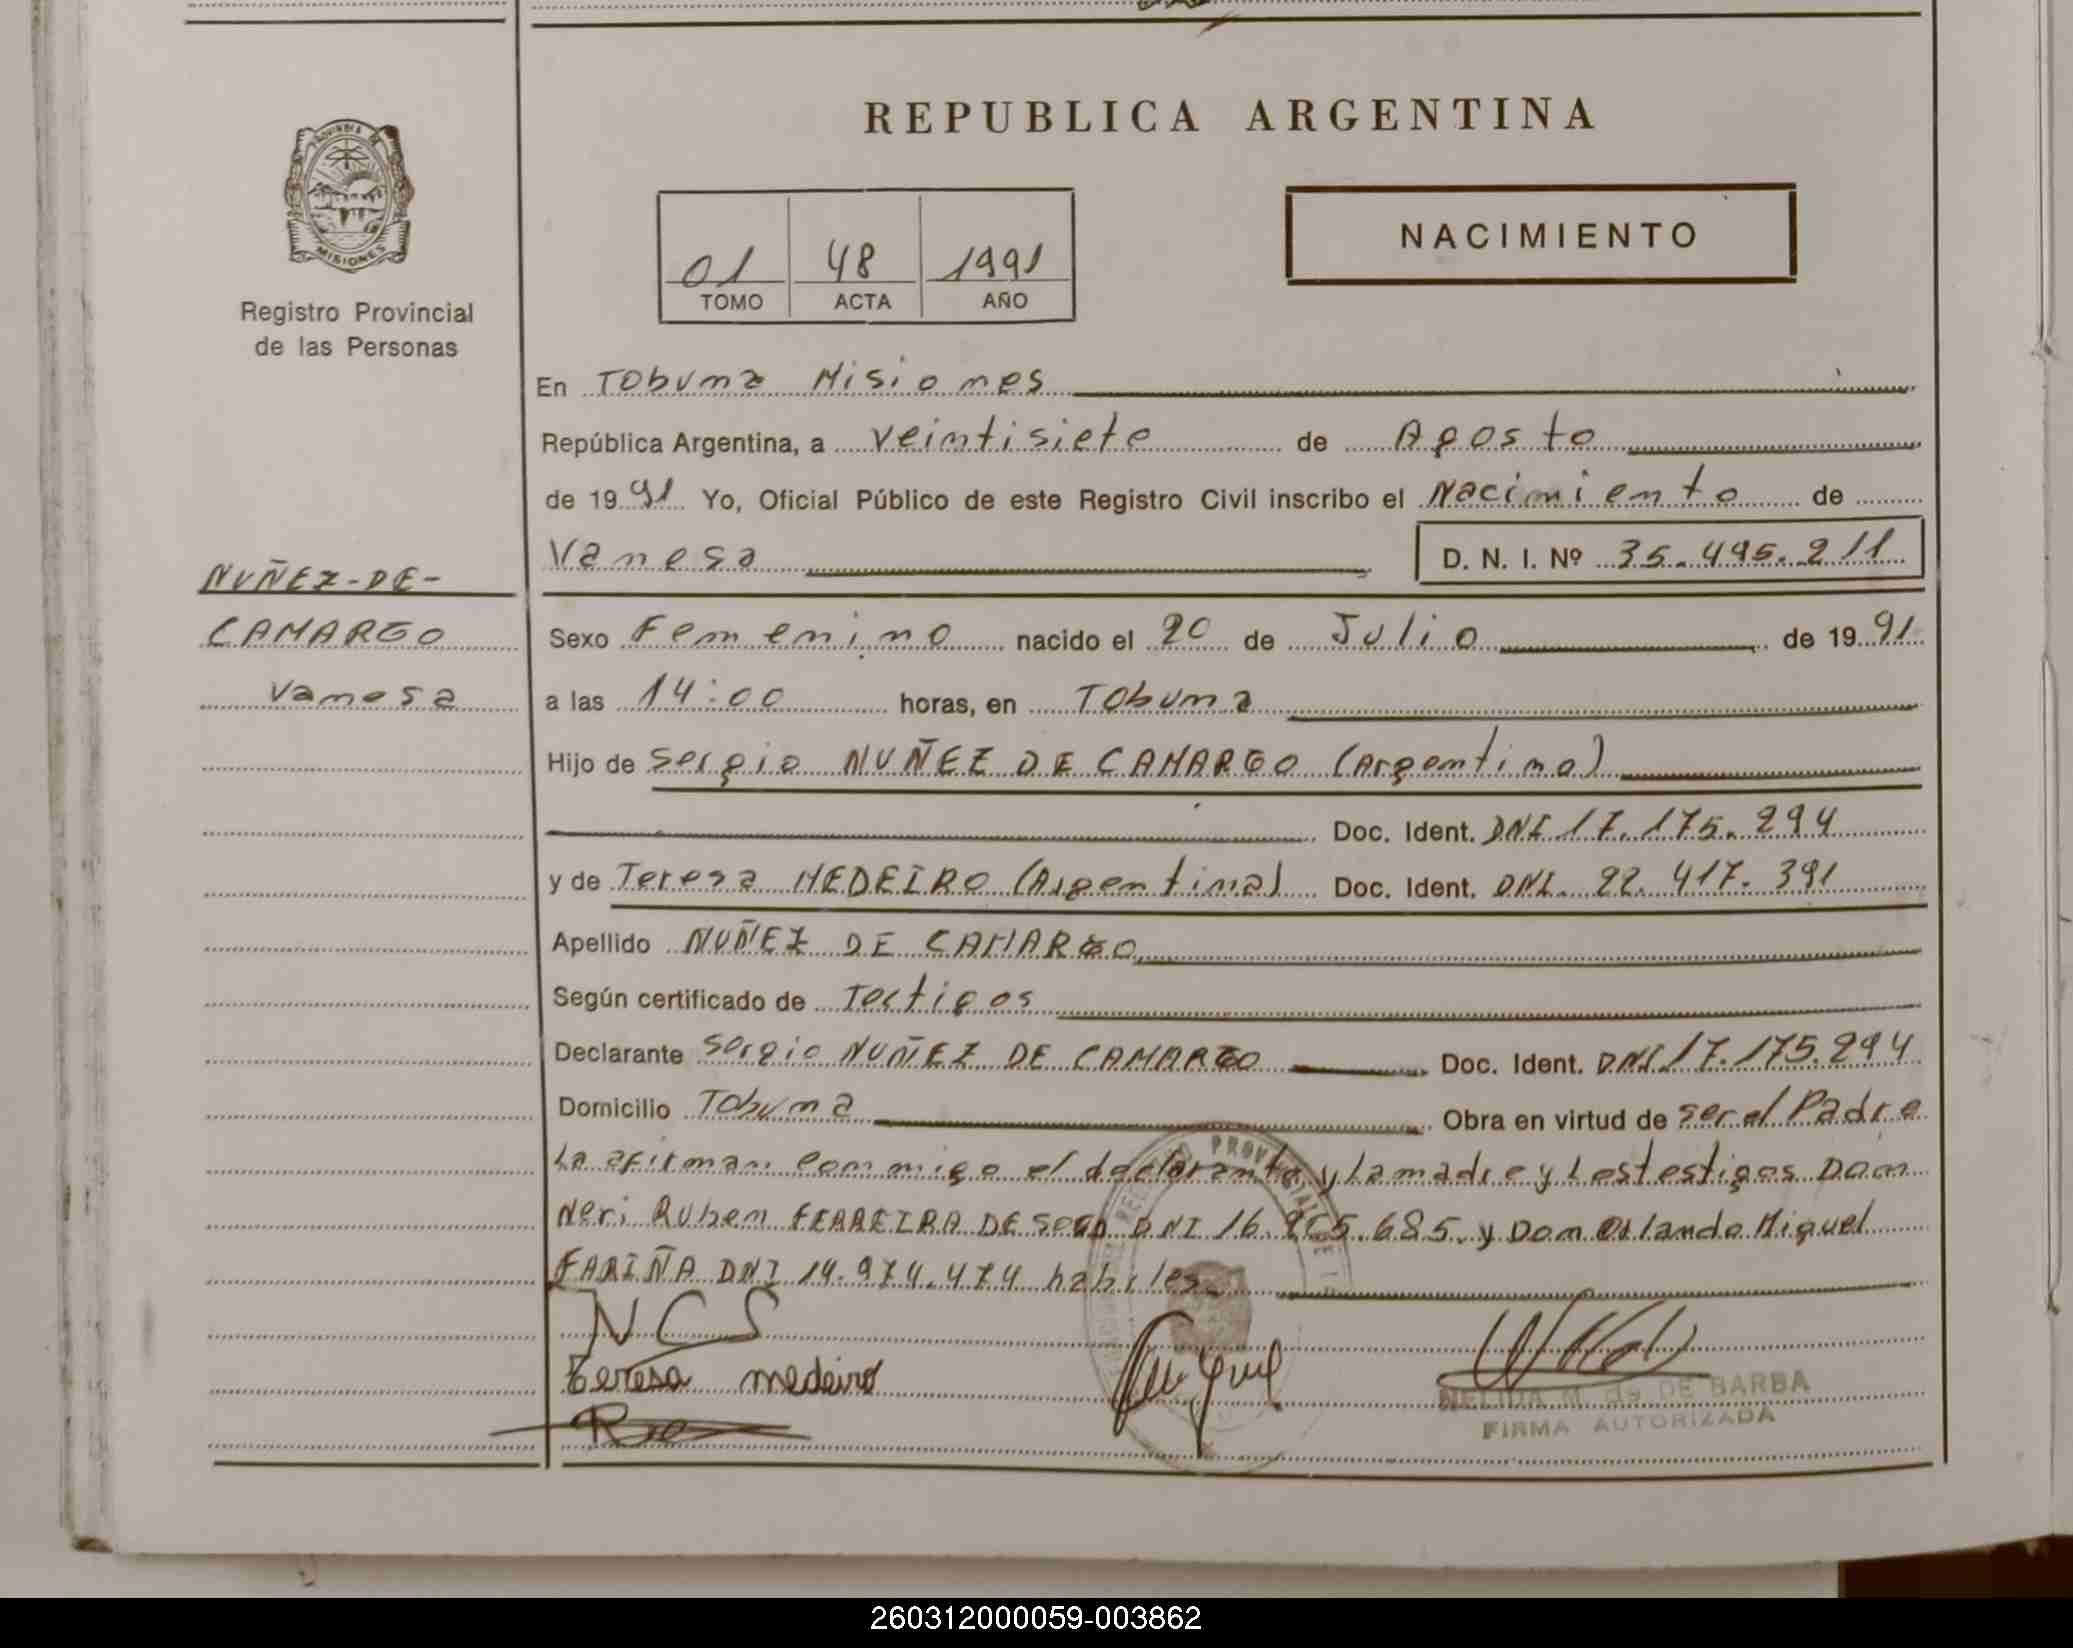 REPUBLICA ARGENTINA
PROVINCIA DE
MISIONES
Registro Provincial
de las Personas
NACIMIENTO
01 48 1991
TOMO ACTA AÑO
En Tobuna Misiones
República Argentina, a veintisiete de Agosto
de 1991 Yo, Oficial Público de este Registro Civil inscribo el Nacimiento de
Vanesa D. N. I. Nº 35.495.211
NUÑEZ-DE-
CAMARGO
Vanesa
Sexo Femenino nacido el 20 de Julio de 1991
a las 14:00 horas, en Tobuna
Hijo de Sergio NUÑEZ DE CAMARGO (Argentino)
Doc. Ident. DNI 17.175.294
y de Teresa MEDEIRO (Argentina) Doc. Ident. DNI. 22.417.391
Apellido NUÑEZ DE CAMARGO
Según certificado de Testigos
Declarante Sergio NUÑEZ DE CAMARGO Doc. Ident. DNI 17.175.294
Domicilio Tobuna Obra en virtud de ser el Padre
La afirman conmigo el declarante y La madre y Los testigos Don
Neri Ruben FERREIRA DE DNI 16. 685. y Don Orlando Miguel
FARIÑA DNI 14.974.474 habiles
NCS
Teresa medeiro
NELIDA M. de DE BARBA
FIRMA AUTORIZADA
260312000059-003862